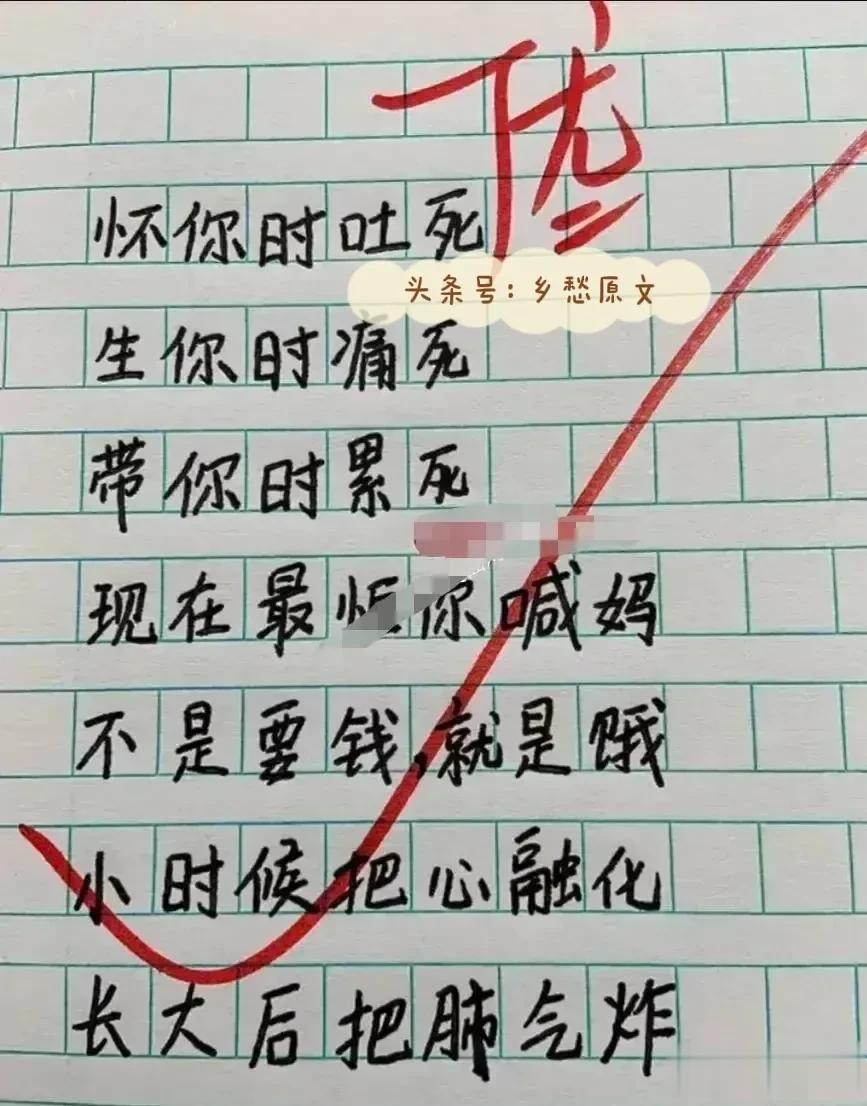 优
怀你时吐死
头条号：乡愁原文
生你时痛死
带你时累死
现在最怕你喊妈
不是要钱，就是饿
小时候把心融化
长大后把肺气炸